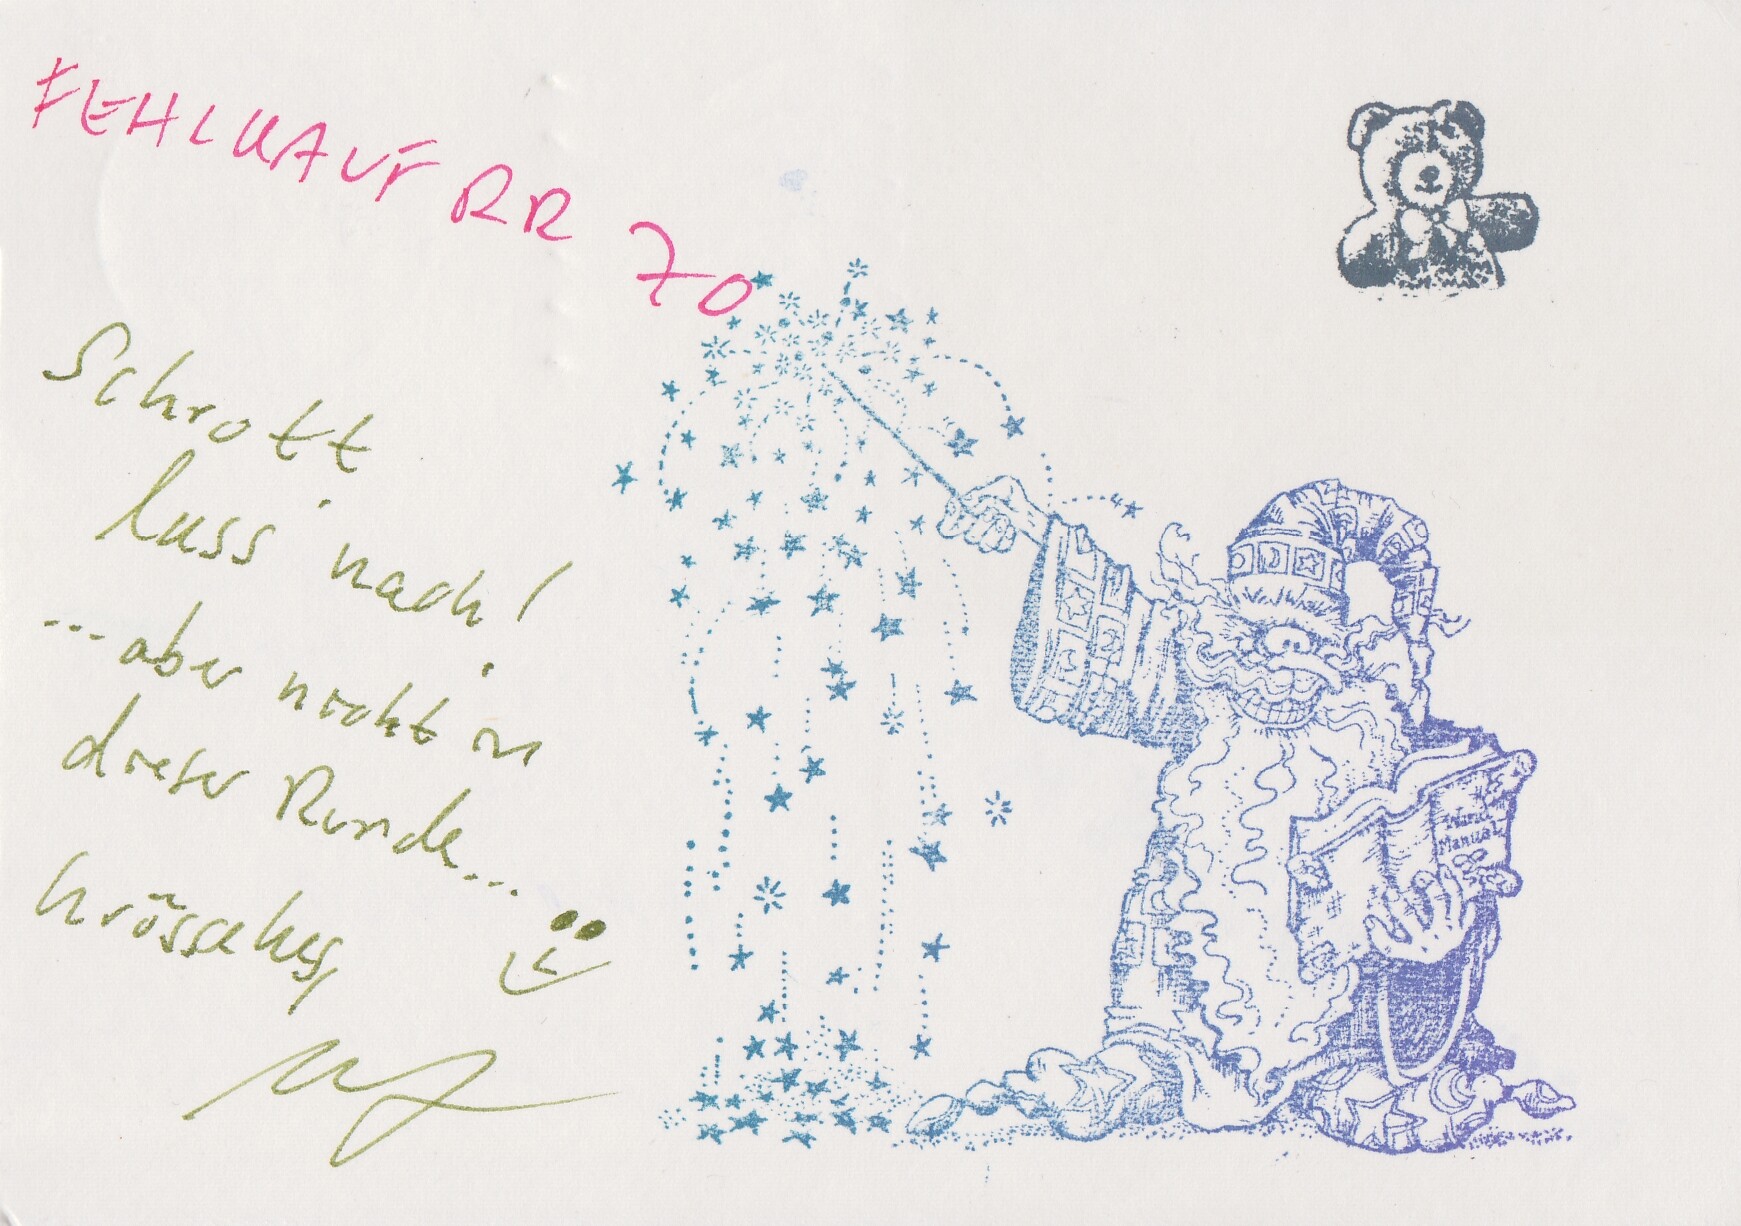 FEHLKAUF RR 70
Schrott
lass nach!
... aber nicht in
dieser Runde...
Krösseles,
Wizard
Manual